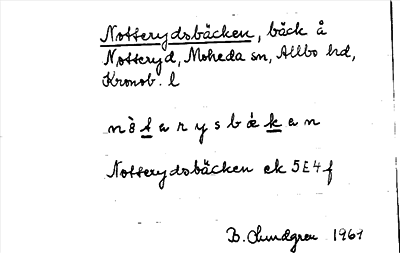 Notterydsbäcken, bäck å
Notteryd, Moheda sn, Allbo hd,
Kronob. l
nòtarysbǽkan
Notterydsbäcken ek 5E4f
B. Lundgren 1961